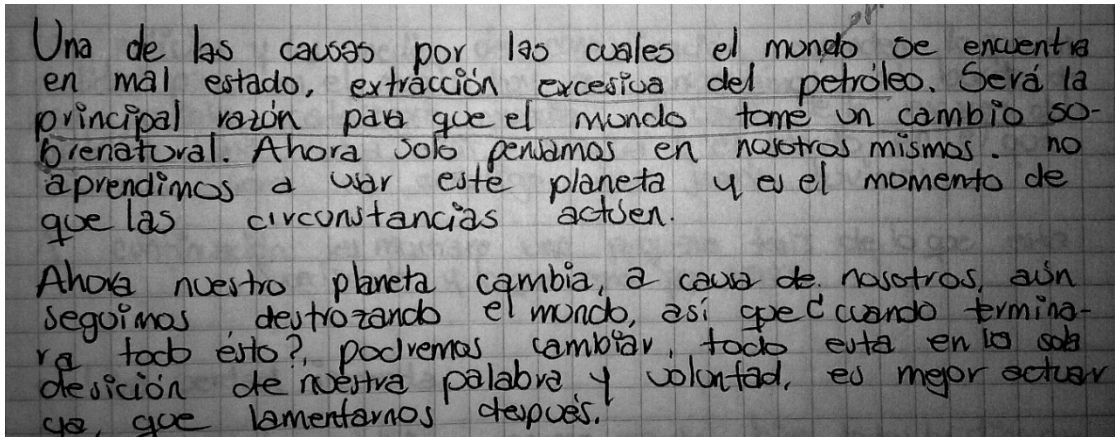 Una de las causas por las cuales el mundo se encuentra
en mal estado, extracción excesiva del petróleo. Será la
principal razón para que el mundo tome un cambio so-
brenatural. Ahora solo pensamos en nosotros mismos. no
aprendimos a usar este planeta y es el momento de
que las circunstancias actúen.
Ahora nuestro planeta cambia, a causa de nosotros, aún
seguimos destrozando el mundo, así que ¿cuando termina-
ra todo ésto?, podremos cambiar, todo esta en la sola
desición de nuestra palabra y voluntad, es mejor actuar
ya, que lamentarnos después.